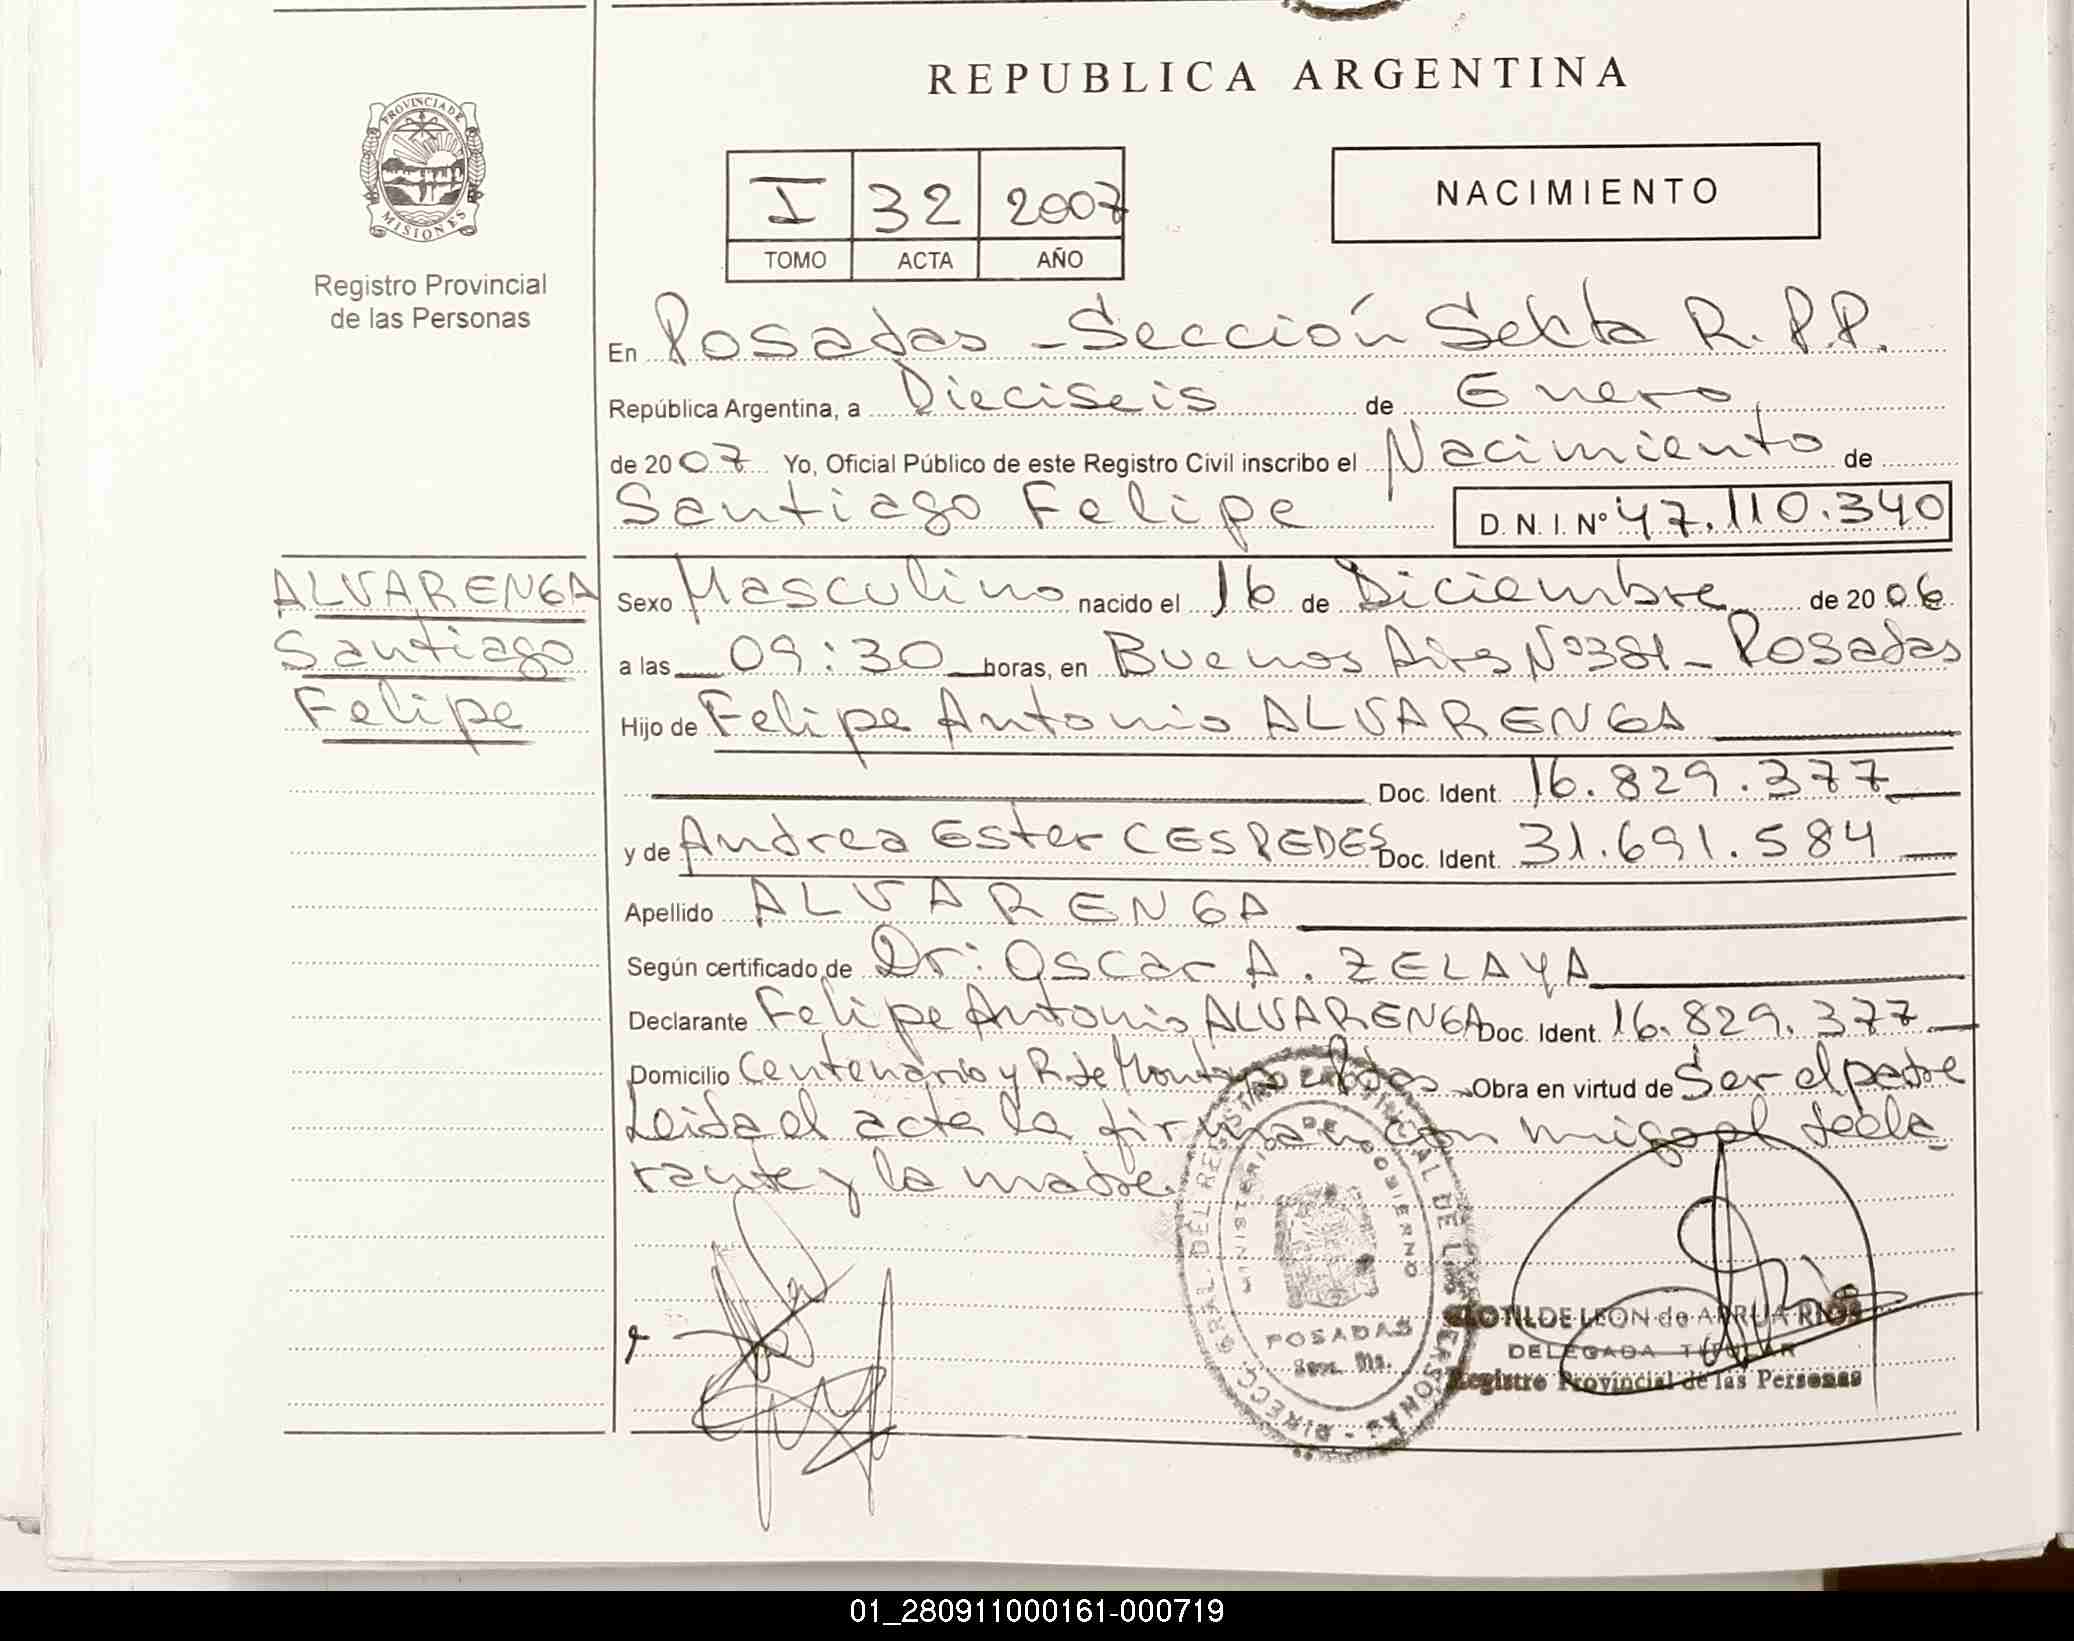 REPUBLICA ARGENTINA
PROVINCIA DE
MISIONES
Registro Provincial
de las Personas
I 32 2007
TOMO ACTA AÑO
NACIMIENTO
En Posadas - Sección Sexta R.P.P.
República Argentina, a Dieciseis de Enero
de 2007 Yo, Oficial Público de este Registro Civil inscribo el Nacimiento de
Santiago Felipe D.N.I. Nº 47.110.340
ALVARENGA
Santiago
Felipe
Sexo Masculino nacido el 16 de Diciembre de 2006
a las 09:30 horas, en Buenos Aires Nº 381 - Posadas
Hijo de Felipe Antonio ALVARENGA
Doc. Ident. 16.829.377
y de Andrea Ester CESPEDES Doc. Ident. 31.691.584
Apellido ALVARENGA
Según certificado de Dr: Oscar A. ZELAYA
Declarante Felipe Antonio ALVARENGA Doc. Ident. 16.829.377
Domicilio Centenario y R. de Montoya Pdas Obra en virtud de Ser el padre
Leida el acta la firman con migo el decla
rante y la madre
DIRECC. GRAL. DEL REGISTRO PROVINCIAL DE LAS PERSONAS
MINISTERIO DE GOBIERNO
POSADAS
CLOTILDE LEON de ARRUA RIOS
DELEGADA TITULAR
Registro Provincial de las Personas
01_280911000161-000719